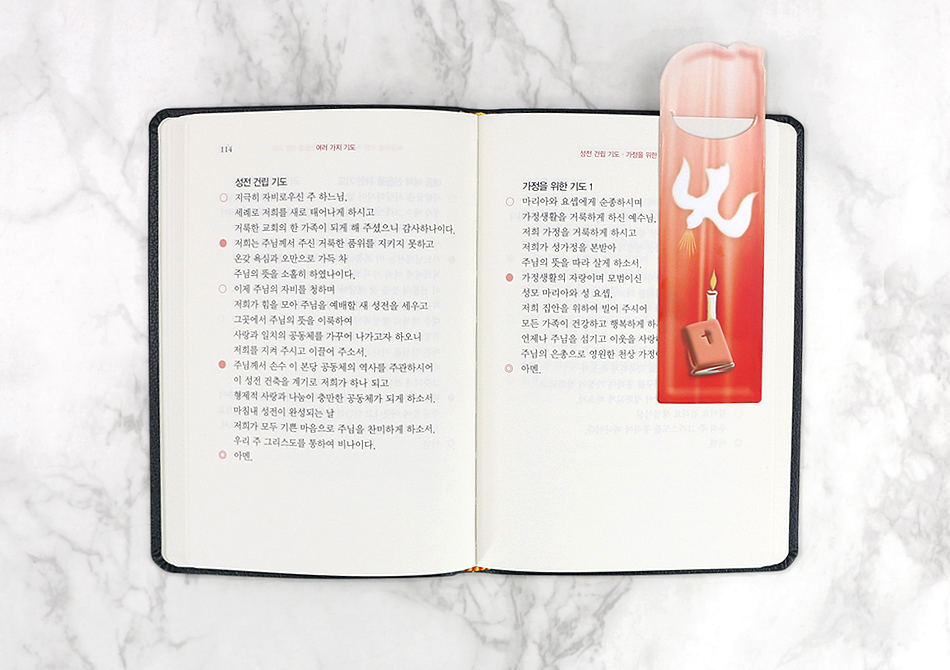 114
여러 가지 기도
성전 건립 기도
○ 지극히 자비로우신 주 하느님,
세례로 저희를 새로 태어나게 하시고
거룩한 교회의 한 가족이 되게 해 주셨으니 감사하나이다.
● 저희는 주님께서 주신 거룩한 품위를 지키지 못하고
온갖 욕심과 오만으로 가득 차
주님의 뜻을 소홀히 하였나이다.
○ 이제 주님의 자비를 청하며
저희가 힘을 모아 주님을 예배할 새 성전을 세우고
그곳에서 주님의 뜻을 이룩하여
사랑과 일치의 공동체를 가꾸어 나가고자 하오니
저희를 지켜 주시고 이끌어 주소서.
● 주님께서 손수 이 본당 공동체의 역사를 주관하시어
이 성전 건축을 계기로 저희가 하나 되고
형제적 사랑과 나눔이 충만한 공동체가 되게 하소서.
마침내 성전이 완성되는 날
저희가 모두 기쁜 마음으로 주님을 찬미하게 하소서.
우리 주 그리스도를 통하여 비나이다.
◎ 아멘.
성전 건립 기도 · 가정을 위한
가정을 위한 기도 1
○ 마리아와 요셉에게 순종하시며
가정생활을 거룩하게 하신 예수님,
저희 가정을 거룩하게 하시고
저희가 성가정을 본받아
주님의 뜻을 따라 살게 하소서.
● 가정생활의 자랑이며 모범이신
성모 마리아와 성 요셉,
저희 집안을 위하여 빌어 주시어
모든 가족이 건강하고 행복하게 하
언제나 주님을 섬기고 이웃을 사랑
주님의 은총으로 영원한 천상 가정
◎ 아멘.